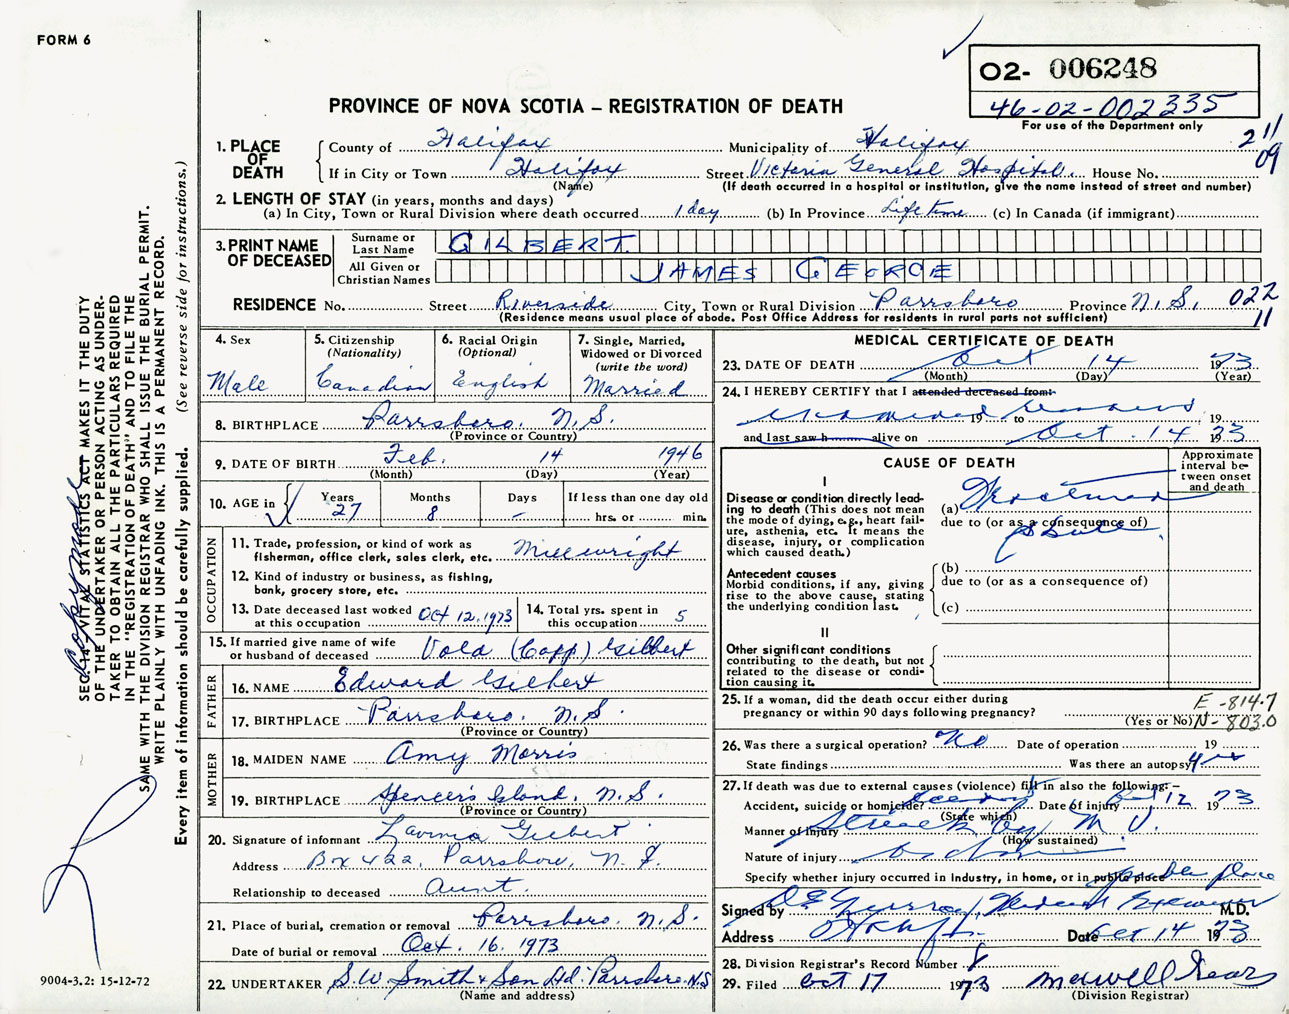 FORM 6
O2- 006248
46-02-002335
For use of the Department only
PROVINCE OF NOVA SCOTIA – REGISTRATION OF DEATH
211
09
1. PLACE OF DEATH
County of Halifax Municipality of Halifax
If in City or Town Halifax Street Victoria General Hospital. House No.
(Name) (If death occurred in a hospital or institution, give the name instead of street and number)
2. LENGTH OF STAY (in years, months and days)
(a) In City, Town or Rural Division where death occurred 1 day (b) In Province Lifetime (c) In Canada (if immigrant)
3. PRINT NAME OF DECEASED
Surname or Last Name GILBERT
All Given or Christian Names JAMES GEORGE
RESIDENCE No. Street Riverside City, Town or Rural Division Parrsboro Province N.S. 022
11
(Residence means usual place of abode. Post Office Address for residents in rural parts not sufficient)
4. Sex
Male
5. Citizenship
(Nationality)
Canadian
6. Racial Origin
(Optional)
English
7. Single, Married,
Widowed or Divorced
(write the word)
Married
8. BIRTHPLACE Parrsboro. N.S.
(Province or Country)
9. DATE OF BIRTH Feb. 14 1946
(Month) (Day) (Year)
10. AGE in
Years 27
Months 8
Days –
If less than one day old
hrs. or min.
OCCUPATION
11. Trade, profession, or kind of work as
fisherman, office clerk, sales clerk, etc. Millwright
12. Kind of industry or business, as fishing,
bank, grocery store, etc.
13. Date deceased last worked
at this occupation OCT 12.1973
14. Total yrs. spent in
this occupation 5
15. If married give name of wife
or husband of deceased Vola (Copp) Gilbert
FATHER
16. NAME Edward Gilbert
17. BIRTHPLACE Parrsboro. N.S.
(Province or Country)
MOTHER
18. MAIDEN NAME Amy Morris
19. BIRTHPLACE Spencer's Island, N.S.
(Province or Country)
20. Signature of informant Lavinia Gilbert
Address Box 422, Parrsboro, N.S.
Relationship to deceased Aunt.
21. Place of burial, cremation or removal Parrsboro. N.S.
Date of burial or removal Oct. 16. 1973
22. UNDERTAKER S.W. Smith & Son Ltd. Parrsboro. N.S
(Name and address)
MEDICAL CERTIFICATE OF DEATH
23. DATE OF DEATH Oct 14 1973
(Month) (Day) (Year)
24. I HEREBY CERTIFY that I attended deceased from:
examined remains 19 to 19
and last saw h alive on Oct. 14 1973
CAUSE OF DEATH
Approximate interval between onset and death
I
Disease or condition directly leading to death (This does not mean the mode of dying, e.g., heart failure, asthenia, etc. It means the disease, injury, or complication which caused death.)
(a) Fractured
due to (or as a consequence of)
Skull
Antecedent causes
Morbid conditions, if any, giving rise to the above cause, stating the underlying condition last.
(b)
due to (or as a consequence of)
(c)
II
Other significant conditions contributing to the death, but not related to the disease or condition causing it.
25. If a woman, did the death occur either during
pregnancy or within 90 days following pregnancy?
(Yes or No)
E-814.7
N-803.0
26. Was there a surgical operation? No Date of operation 19
State findings Was there an autopsy?
27. If death was due to external causes (violence) fill in also the following:–
Accident, suicide or homicide Date of injury 12 1973
(State which)
Manner of injury Struck by M V.
(How sustained)
Nature of injury
Specify whether injury occurred in Industry, in home, or in public place public place
Signed by Medical Examiner M.D.
Address Date Oct 14 1973
28. Division Registrar's Record Number
29. Filed Oct 17 1973
(Division Registrar)
SEC. 14 – VITAL STATISTICS ACT MAKES IT THE DUTY
OF THE UNDERTAKER OR PERSON ACTING AS UNDER-
TAKER TO OBTAIN ALL THE PARTICULARS REQUIRED
IN THE "REGISTRATION OF DEATH" AND TO FILE THE
SAME WITH THE DIVISION REGISTRAR WHO SHALL ISSUE THE BURIAL PERMIT.
WRITE PLAINLY WITH UNFADING INK. THIS IS A PERMANENT RECORD.
Every item of information should be carefully supplied. (See reverse side for instructions.)
Copy made
9004-3.2: 15-12-72